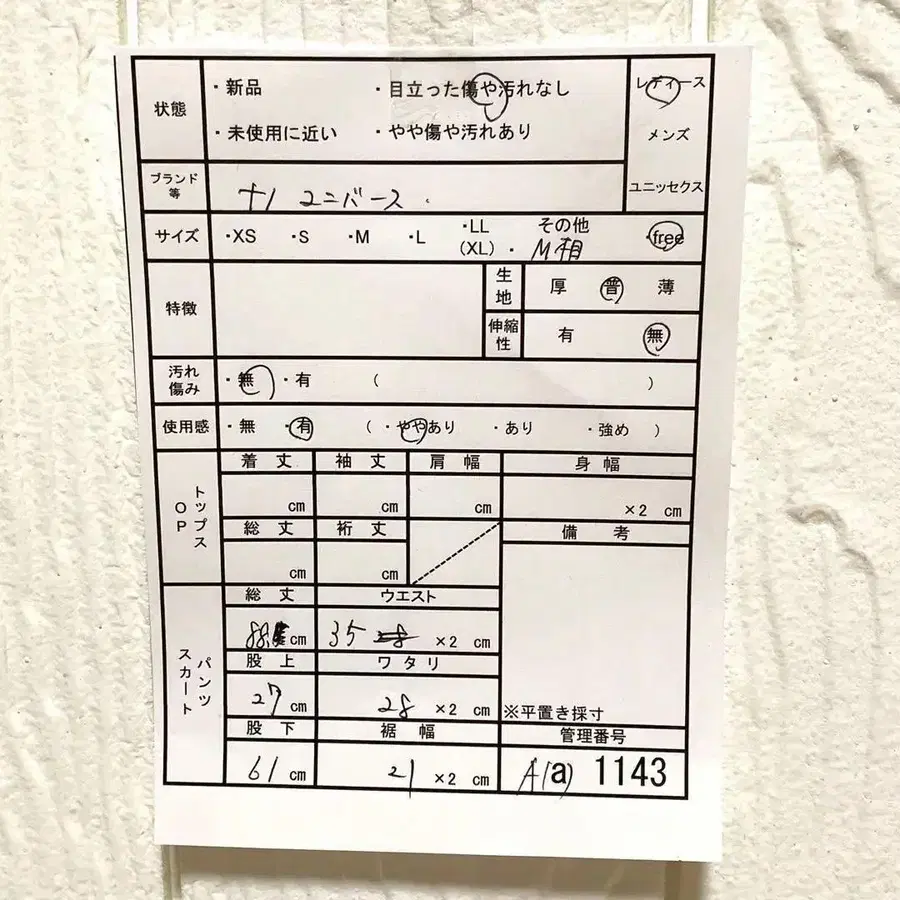 状態
・新品 ・目立った傷や汚れなし
・未使用に近い ・やや傷や汚れあり
レディース
メンズ
ユニセックス
ブランド等
ユニバース
サイズ ・XS ・S ・M ・L ・LL (XL) ・ その他 M相 ・free
特徴
生地 厚 普 薄
伸縮性 有 無
汚れ傷み ・無 ・有 ( )
使用感 ・無 ・有 ( ・ややあり ・あり ・強め )
トップス OP
着丈 袖丈 肩幅 身幅
cm cm cm ×2 cm
総丈 裄丈 備考
cm cm
パンツ スカート
総丈 ウエスト
cm 35 ×2 cm
股上 ワタリ
27 cm 28 ×2 cm
※平置き採寸
股下 裾幅 管理番号
61 cm 21 ×2 cm A(a) 1143